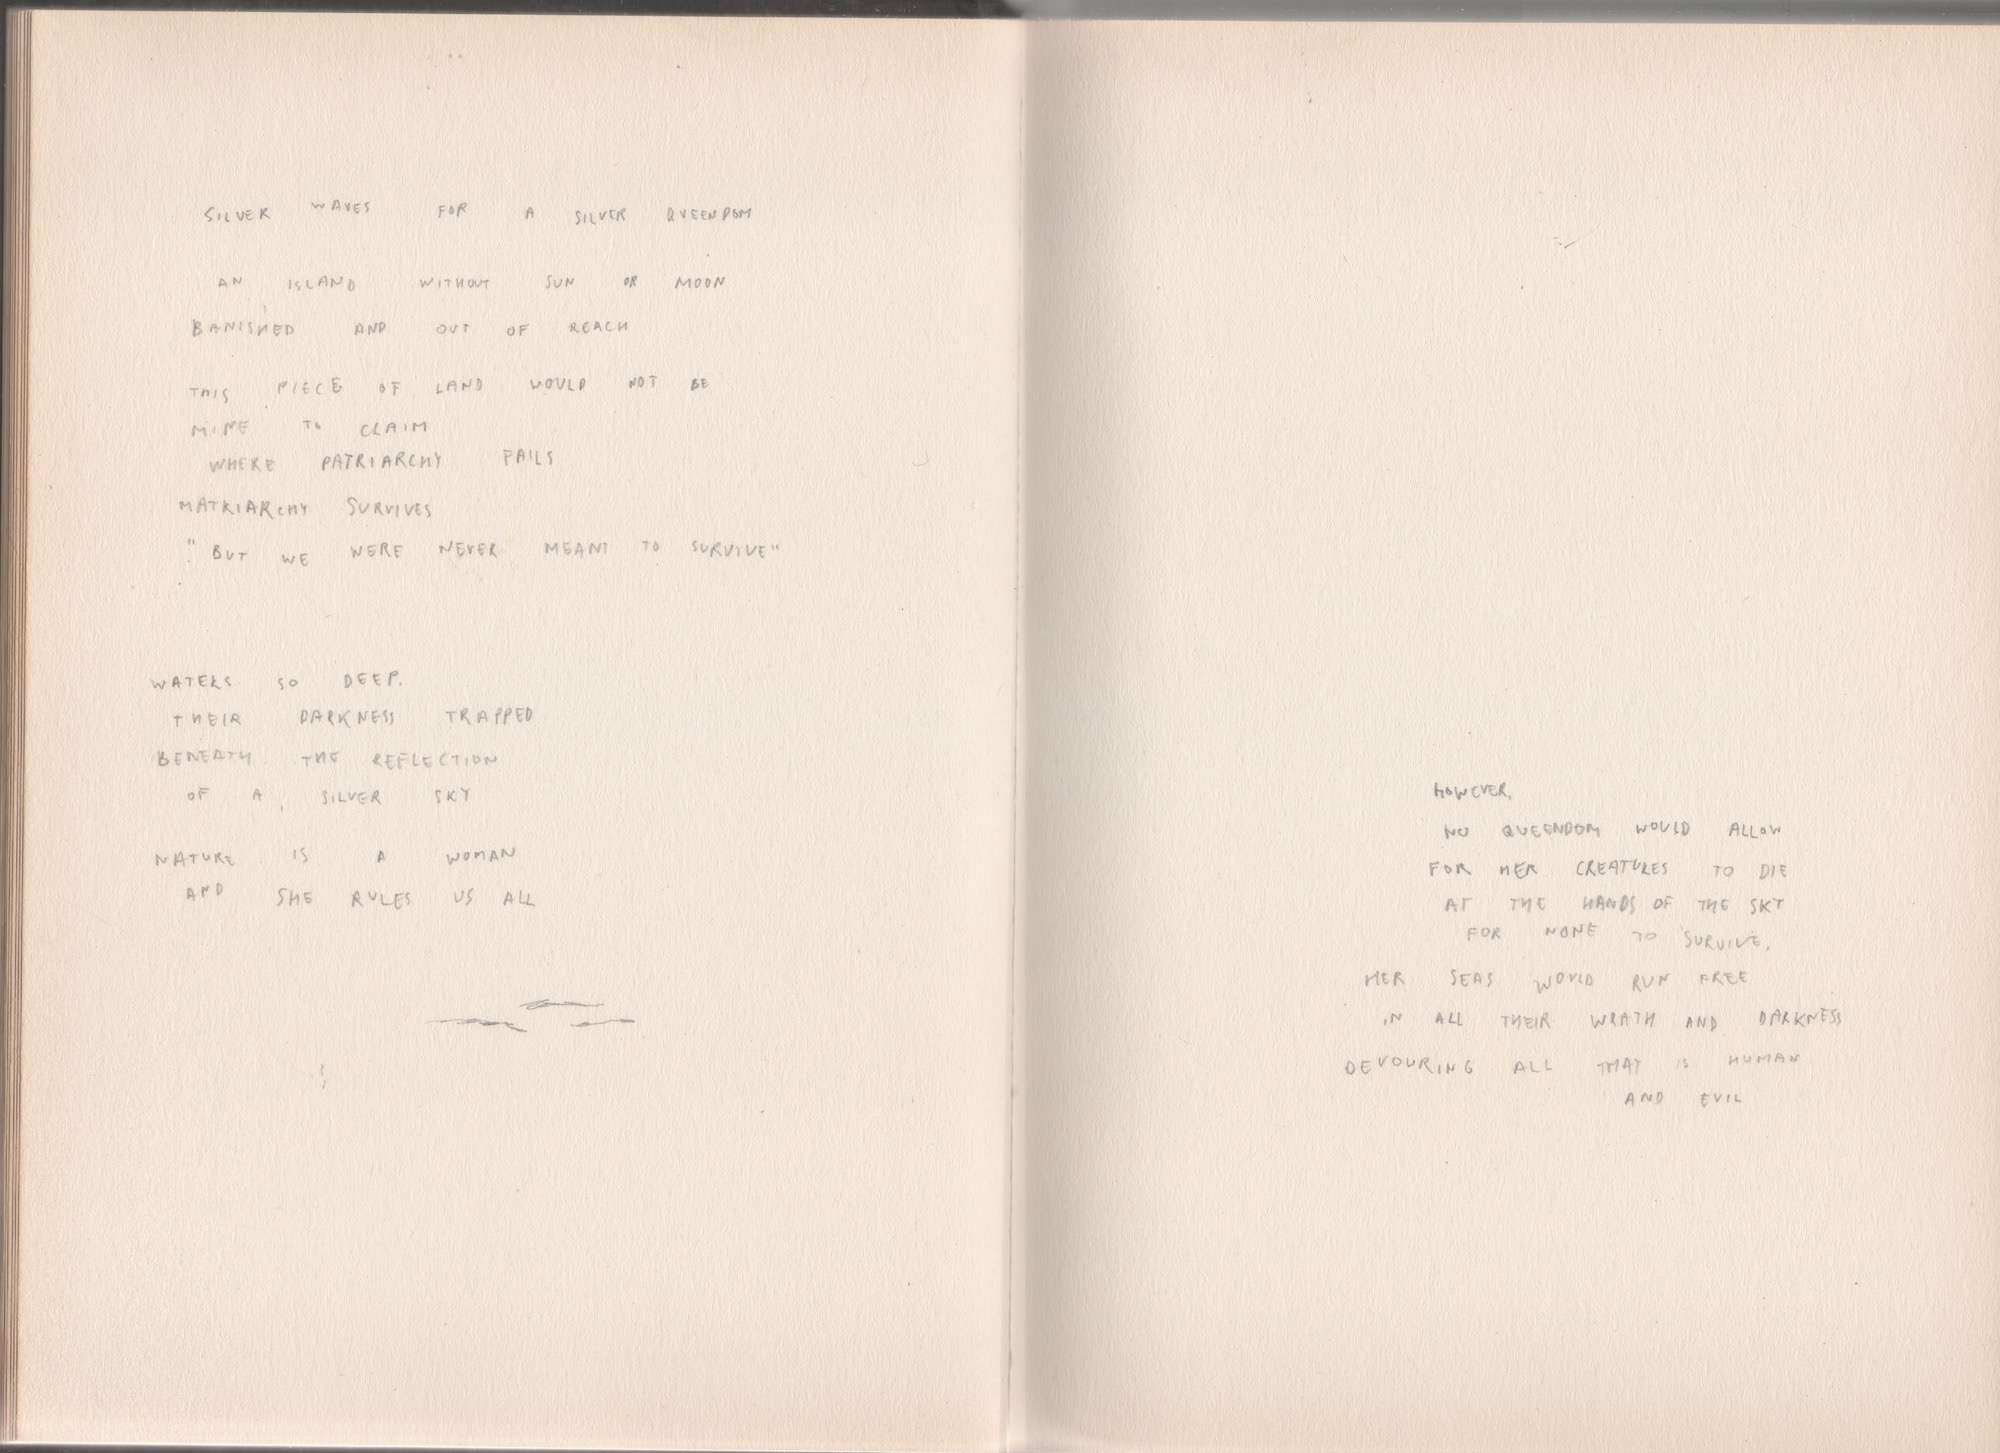 SILVER WAVES FOR A SILVER QUEENDOM
AN ISLAND WITHOUT SUN OR MOON
BANISHED AND OUT OF REACH
THIS PIECE OF LAND WOULD NOT BE
MINE TO CLAIM
WHERE PATRIARCHY FAILS
MATRIARCHY SURVIVES
"BUT WE WERE NEVER MEANT TO SURVIVE"
WATERS SO DEEP.
THEIR DARKNESS TRAPPED
BENEATH THE REFLECTION
OF A SILVER SKY
NATURE IS A WOMAN
AND SHE RULES US ALL
HOWEVER,
NO QUEENDOM WOULD ALLOW
FOR HER CREATURES TO DIE
AT THE HANDS OF THE SKY
FOR NONE TO SURVIVE.
HER SEAS WOULD RUN FREE
IN ALL THEIR WRATH AND DARKNESS
DEVOURING ALL THAT IS HUMAN
AND EVIL